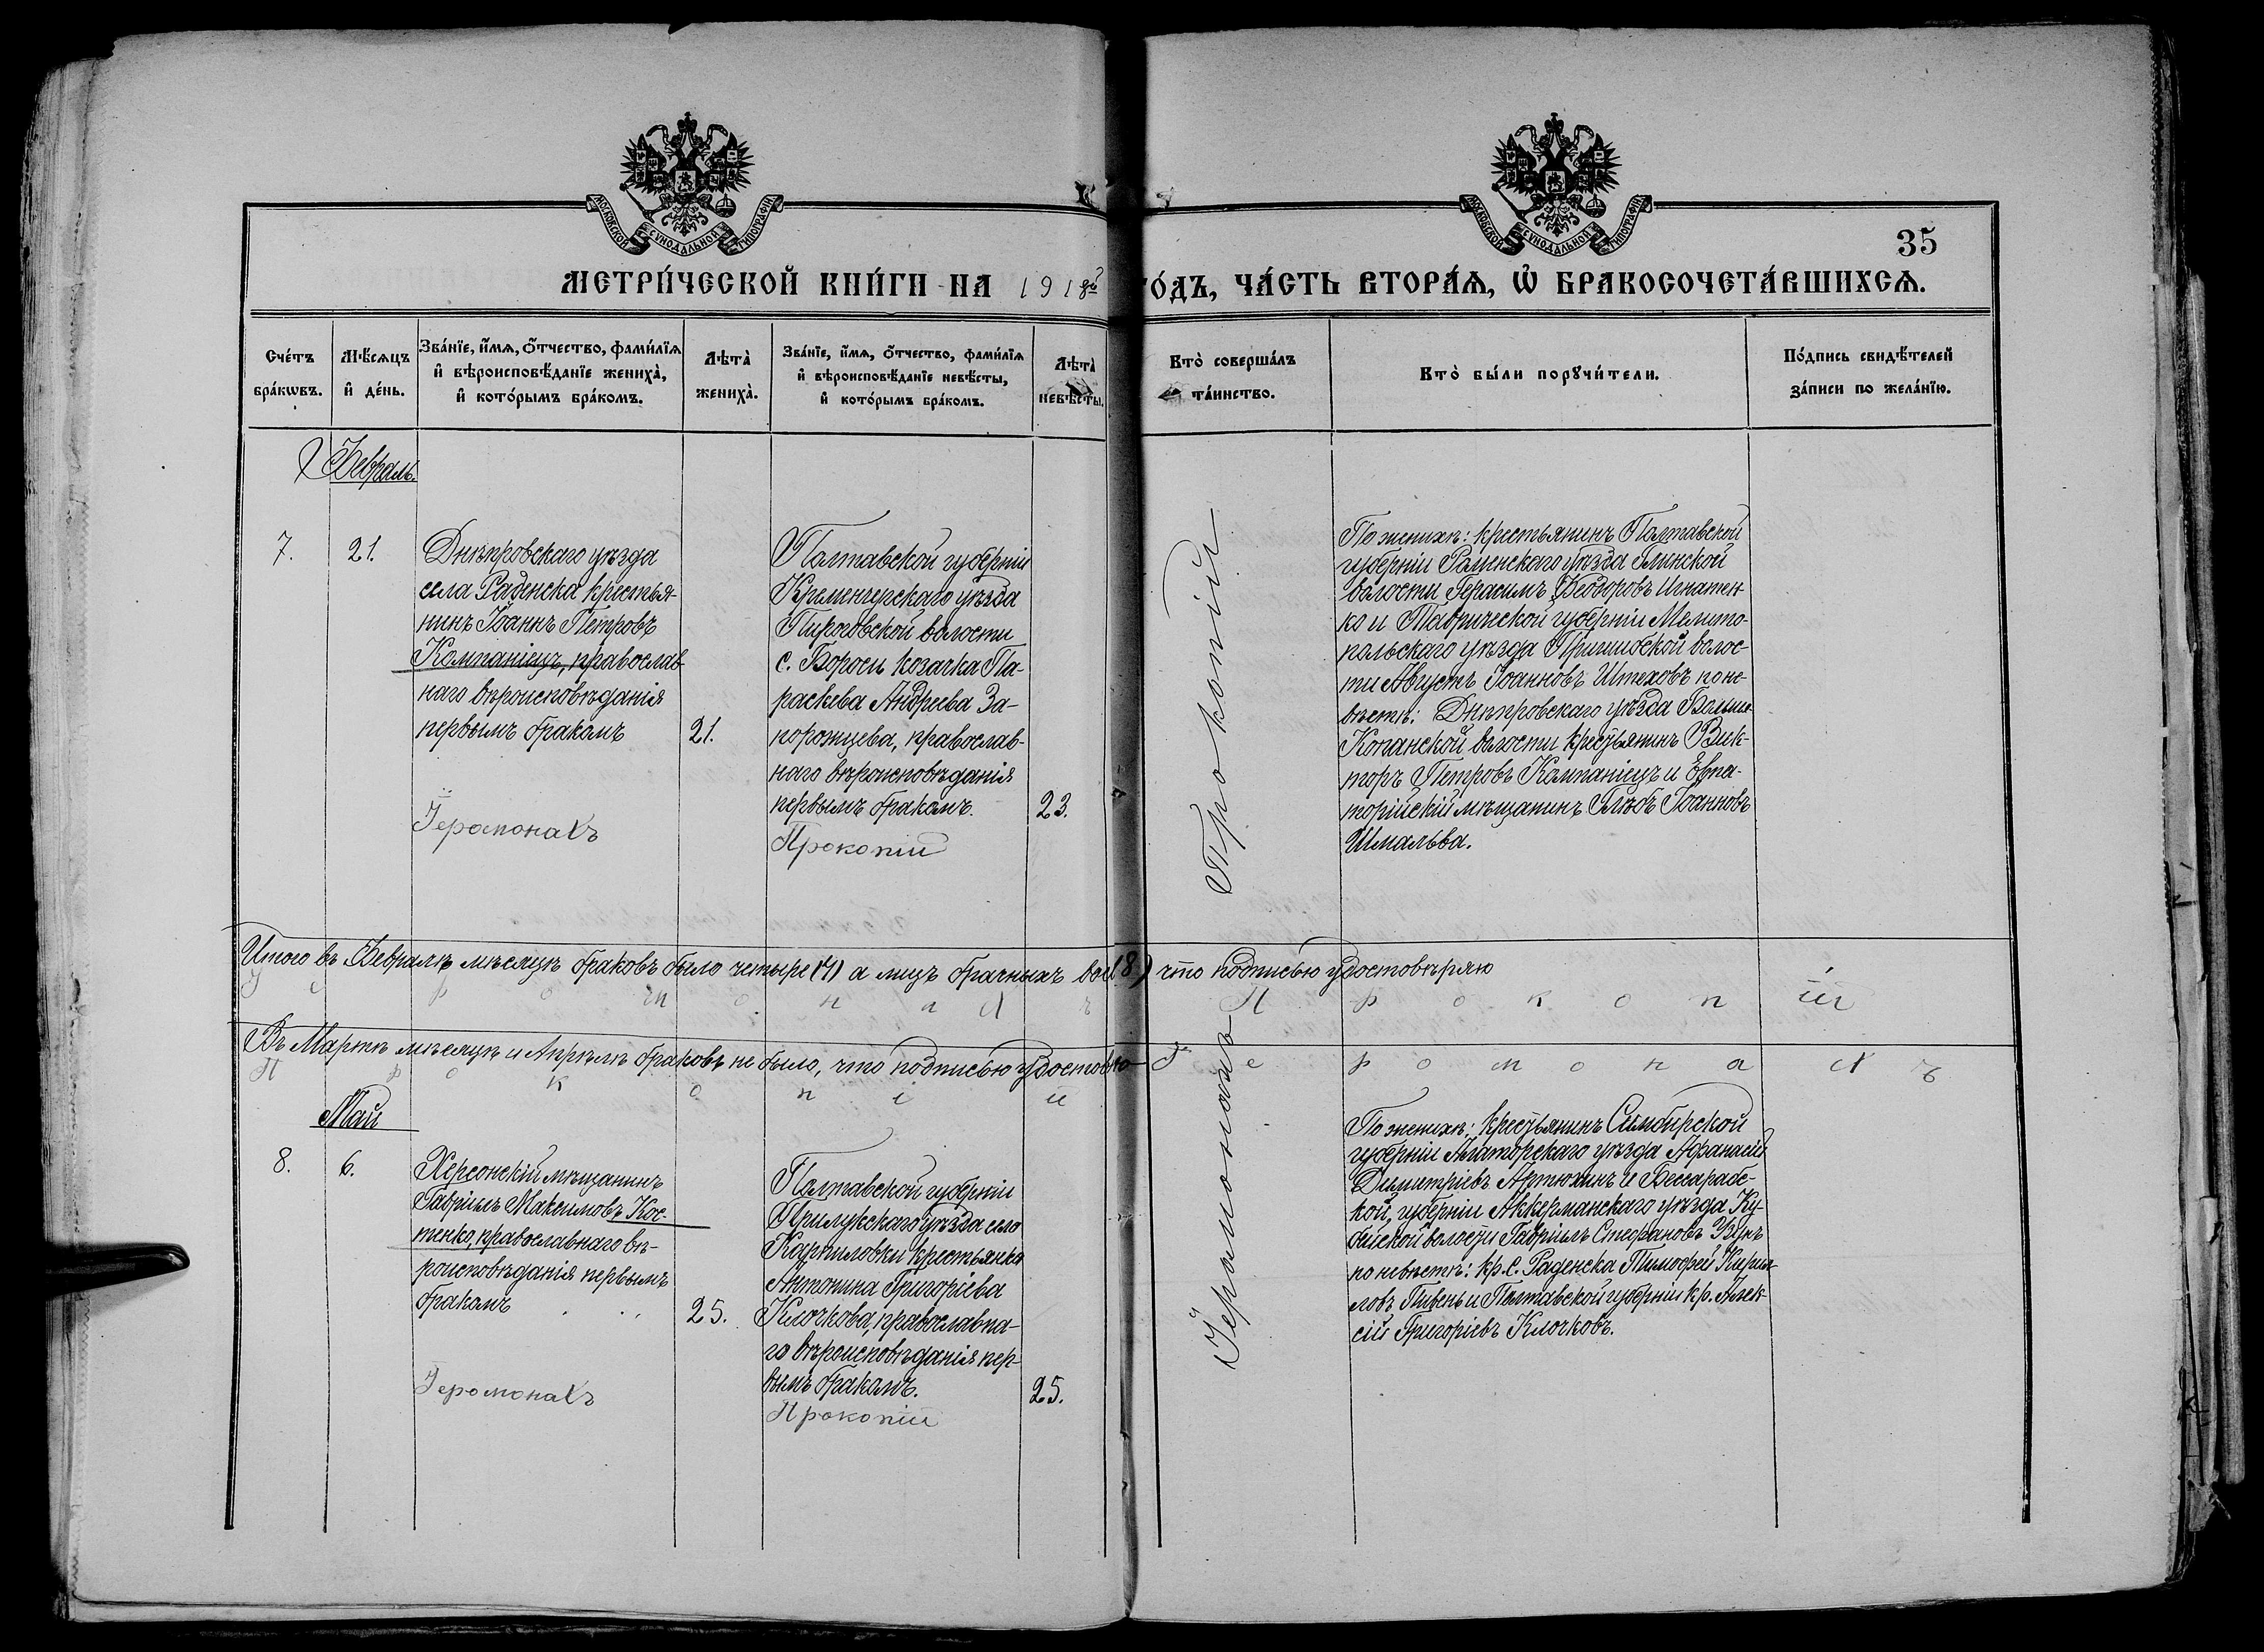 МОСКОВСКОЙ СѴНОДАЛЬНОЙ ТИПОГРАФІИ
МОСКОВСКОЙ СѴНОДАЛЬНОЙ ТИПОГРАФІИ
35
МЕТРИ́ЧЕСКОЙ КНИ́ГИ НА 1918й ГО́ДЪ, ЧА́СТЬ ВТОРА́Я, Ѡ҆ БРАКОСОЧЕТА́ВШИХСѦ.
Сче́тъ бра́кѡвъ.
Мѣ́сѧцъ и҆ де́нь.
Зва́нїе, и҆́мѧ, ѻ҆́тчество, фами́лїѧ
и҆ вѣроисповѣ́данїе жениха̀,
и҆ кото́рымъ бра́комъ.
Лѣта̀ жениха̀.
Зва́нїе, и҆́мѧ, ѻ҆́тчество, фами́лїѧ
и҆ вѣроисповѣ́данїе невѣ́сты,
и҆ кото́рымъ бра́комъ.
Лѣта̀ невѣ́сты.
Кто̀ соверша́лъ та́инство.
Кто̀ бы́ли порꙋчи́тели.
По́дпись свидѣ́телей
за́писи по жела́нїю.
Февраль.
7.
21.
Днѣпровскаго уѣзда
села Раденска крестья-
нинъ Іоаннъ Петровъ
Компаніецъ, православ-
наго вѣроисповѣданія
первымъ бракомъ
21.
Іеромонахъ
Полтавской губерніи
Кременчугскаго уѣзда
Пироговской волости
с. Бороси козачка Па-
раскева Андреева За-
порожцева, православ-
наго вѣроисповѣданія
первымъ бракомъ.
23.
Прокопій
Прокопій
По женихѣ: крестьянинъ Полтавской
губерніи Роменскаго уѣзда Глинской
волости Герасимъ Ѳеодоровъ Игнатен-
ко и Таврической губерніи Мелито-
польскаго уѣзда Пришибской волос-
ти Августъ Іоанновъ Штеховъ по не-
вѣстѣ: Днѣпровскаго уѣзда Больше
Копанской волости крестьянинъ Вик-
торъ Петровъ Компаніецъ и Евпа-
торійскій мѣщанинъ Глѣбъ Іоанновъ
Шмальва.
Итого въ Февралѣ мѣсяцѣ браковъ было четыре (4) а лицъ брачныхъ вос. (8.) что подписью удостовѣряю
Іеромонахъ Прокопій
Въ Мартѣ мѣсяцѣ и Апрѣлѣ браковъ не было, что подписью удостовѣ-
Іеромонахъ
Прокопій
Май
8.
6.
Херсонскій мѣщанинъ
Гавріилъ Максимовъ Кос-
тенко, православнаго вѣ-
роисповѣданія первымъ
бракомъ
25.
Іеромонахъ
Полтавской губерніи
Прилукскаго уѣзда село
Карпиловки крестьянка
Антонина Григоріева
Клочкова, православна-
го вѣроисповѣданія пер-
вымъ бракомъ.
25.
Прокопій
Іеромонахъ
По женихѣ: крестьянинъ Симбирской
губерніи Алаторскаго уѣзда Аѳанасій
Димитріевъ Артюхинъ и Бессарабс-
кой, губерніи Аккерманскаго уѣзда Ку-
бейской волости Гавріилъ Стефановъ Узунъ
по невѣстѣ: кр. с. Раденска Тимофей Кирил-
ловъ Пивень и Полтавской губерніи кр. Алек-
сій Григоріевъ Клочковъ.